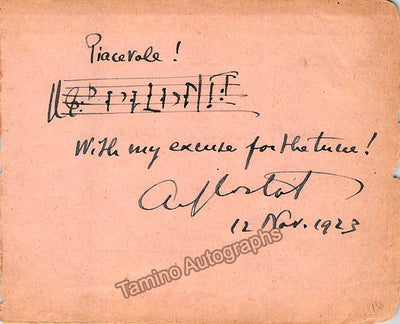 Piacevole!
With my excuse for the tune!
A. Cortot
12 Nov. 1923
Tamino Autographs